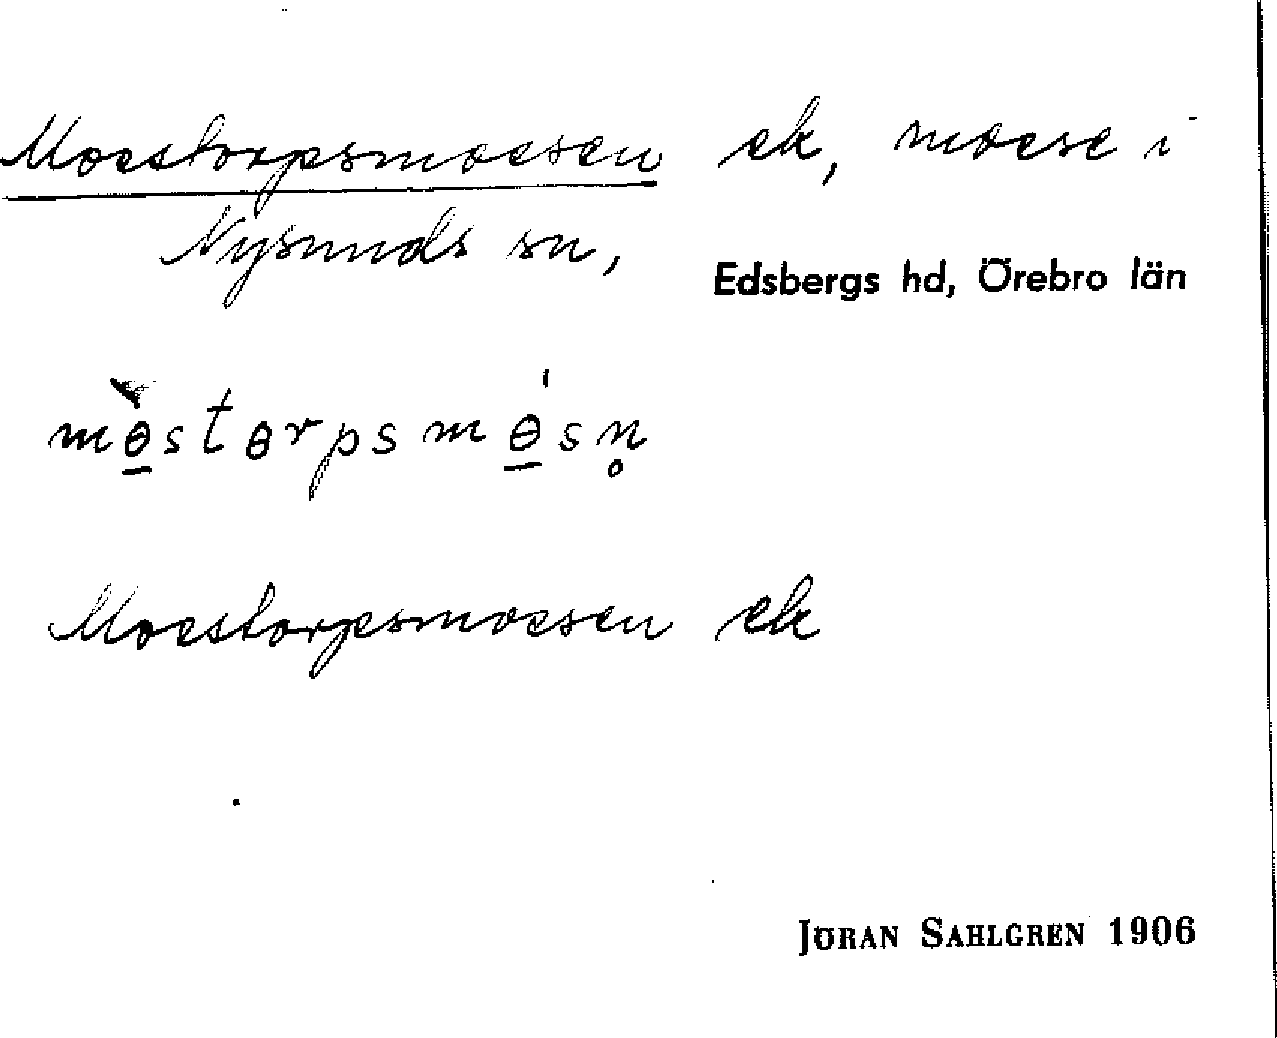 Mosstorpsmossen ek, mosse i
Nysunds sn,
Edsbergs hd, Örebro län
mɵ̠̀stɵrpsmɵ̠́sn̥
Mosstorpsmossen ek
JÖRAN SAHLGREN 1906